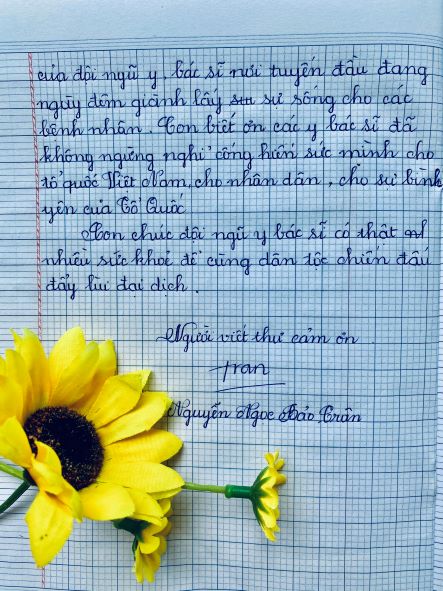 của đội ngũ y, bác sĩ nơi tuyến đầu đang
ngày đêm giành lấy sự sống cho các
bệnh nhân. Con biết ơn các y bác sĩ đã
không ngừng nghỉ cống hiến sức mình cho
tổ quốc Việt Nam, cho nhân dân, cho sự bình
yên của Tổ Quốc
Con chúc đội ngũ y bác sĩ có thật
nhiều sức khoẻ để cùng dân tộc chiến đấu
đẩy lùi đại dịch.
Người viết thư cảm ơn
Tran
Nguyễn Ngọc Bảo Trân